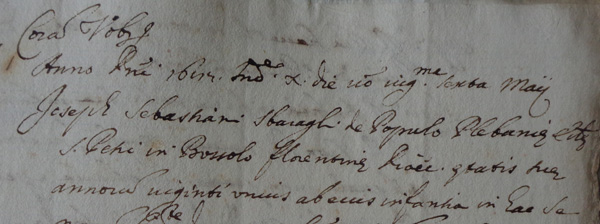 Corā Vobis
Anno Dni 1612. Ind.e X. die vō vig.ma sexta Maij
Joseph Sebastiani Sbaragli de Populo Plebaniæ
S. Petri in Bossolo florentinæ Diœc. ętatis suæ
annorū viginti unius ab eius infantia in eae se